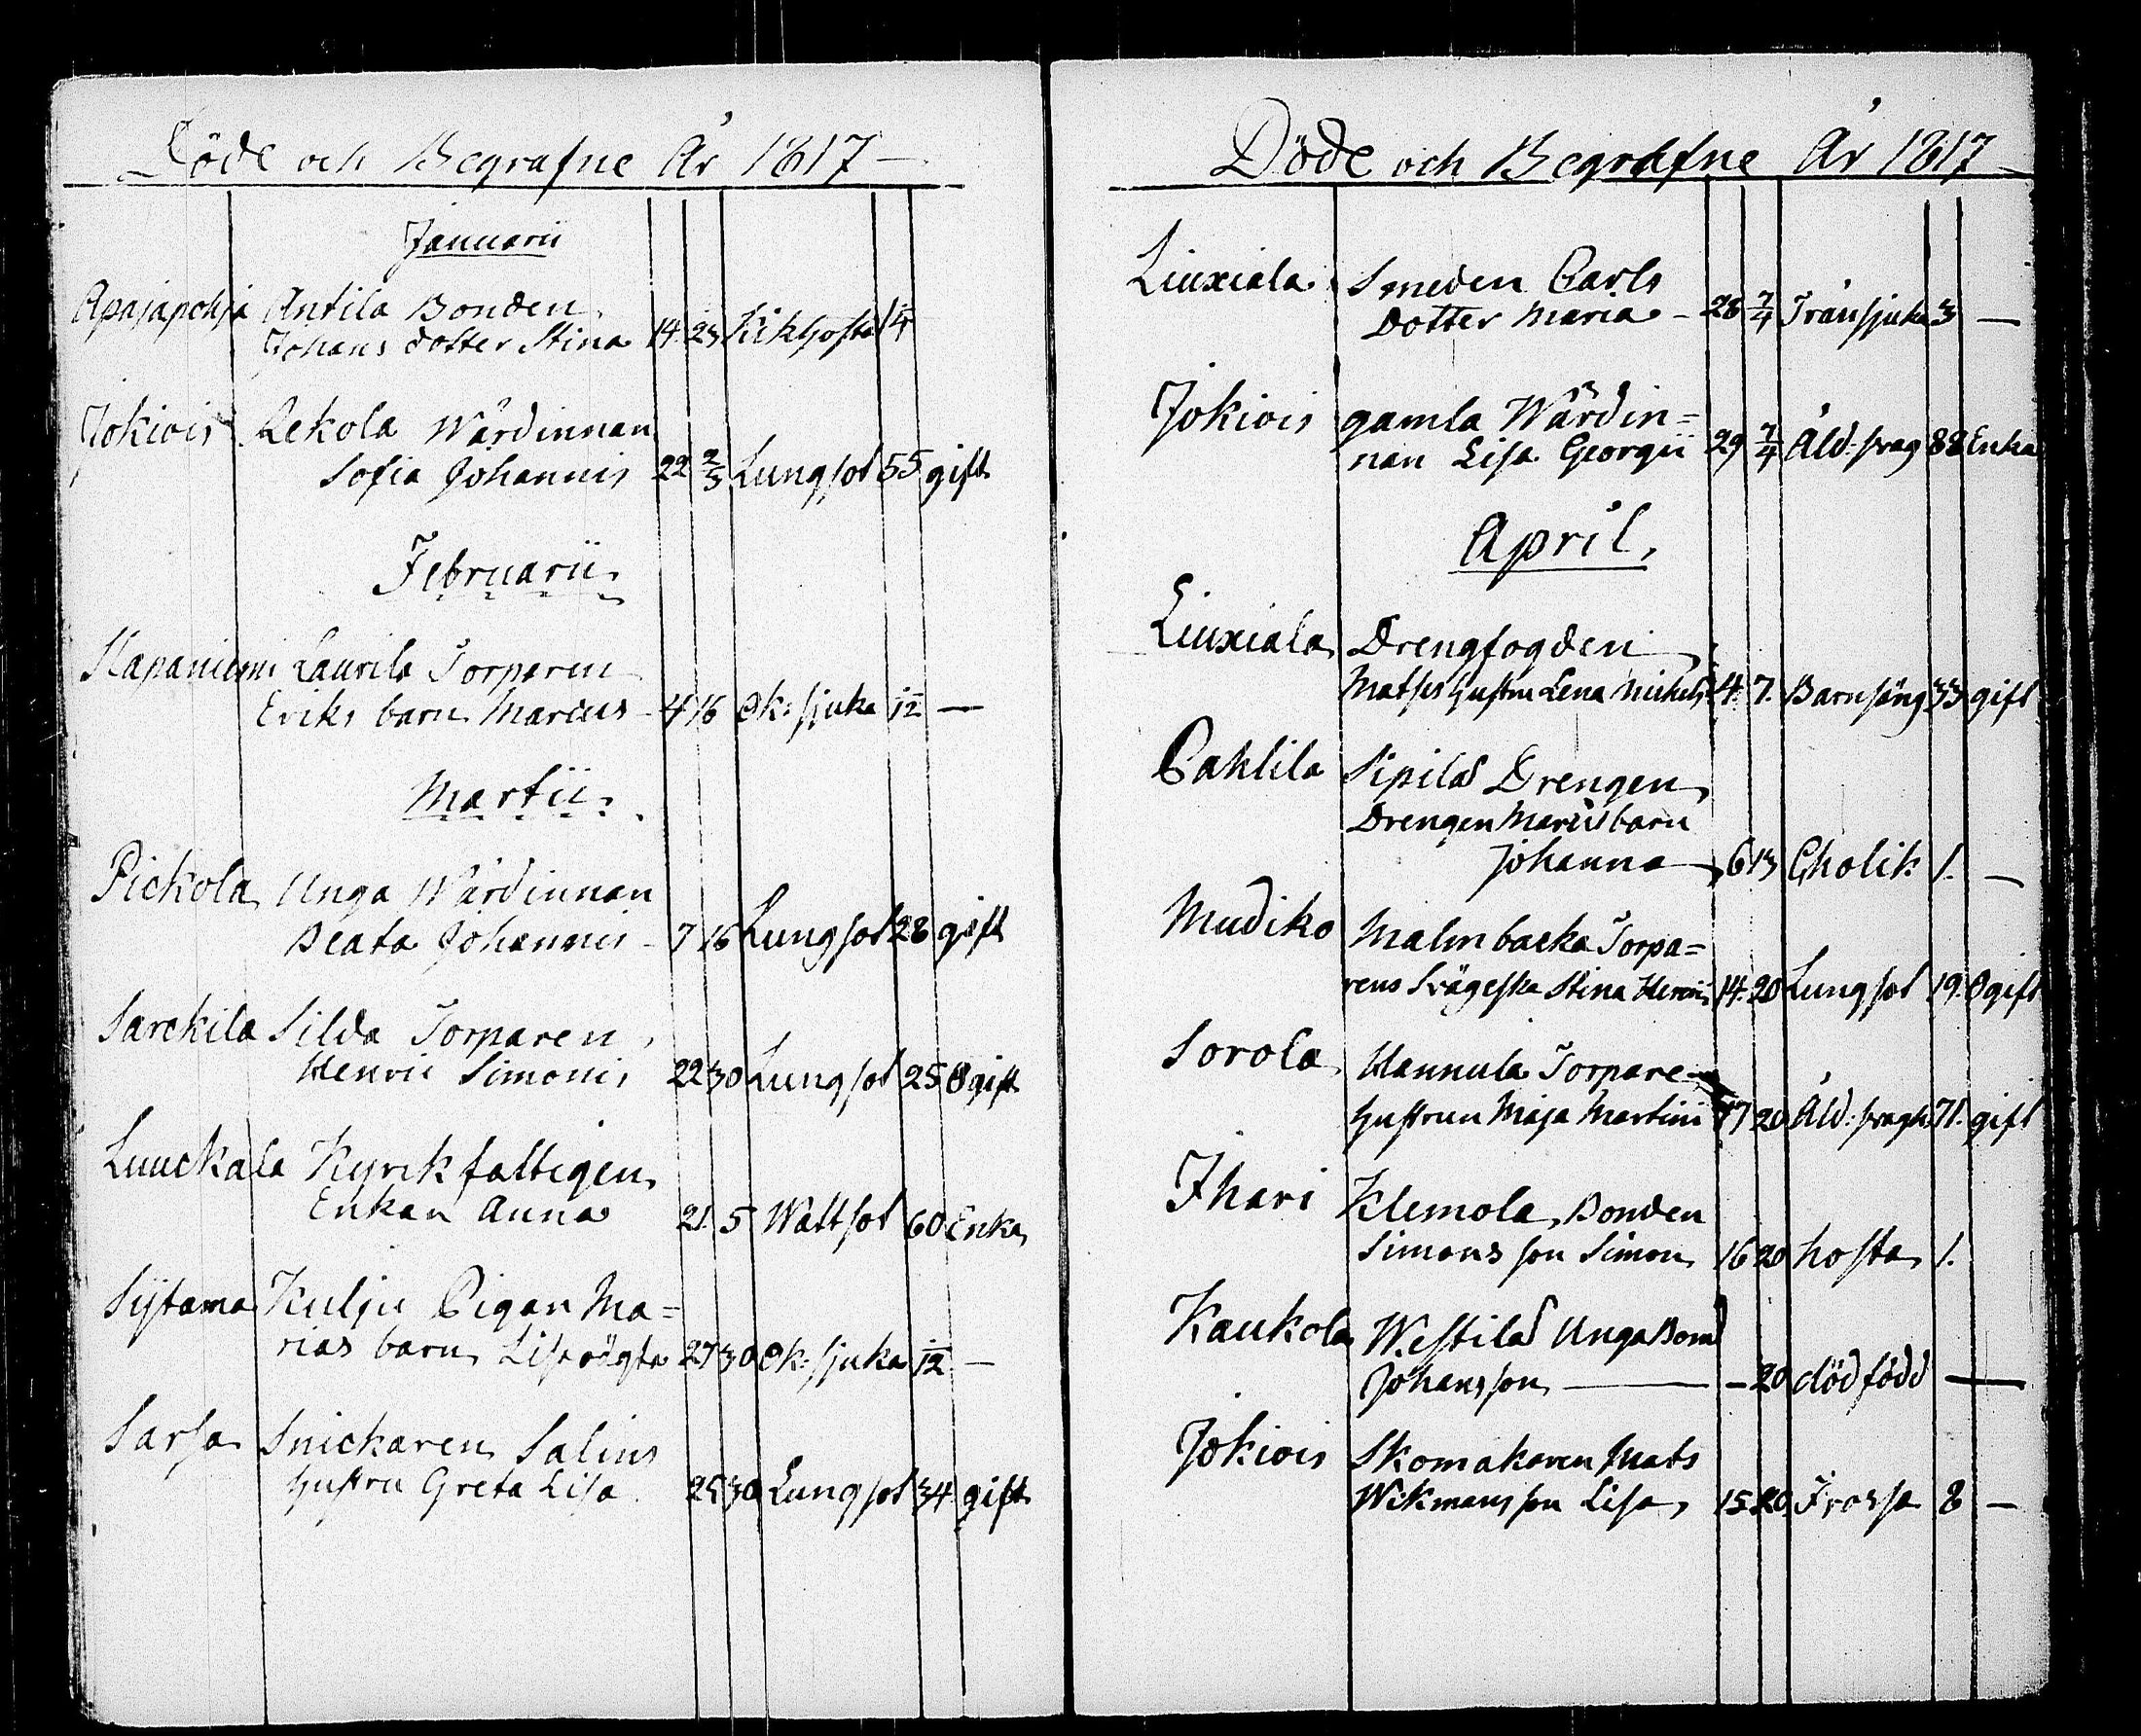 Döde och Begrafne År 1817
Januarii
Apajapohja Antila Bonden
Johans dotter Stina 14. 23 Kikhosta 1/4
Jokiois Rekola Wärdinnan
Sofia Johannis 22 2/3 Lungsot 55 gift
Februarii
Kapaniemi Laurila Torparen
Eriks barn Marcus - 4 16 Ok: sjuka 1/12 —
Martii
Pickola Unga Wärdinnan
Beata Johannis - 7 16 Lungsot 28 gift
Sarckila Silda Torparen
Henric Simonis 22 30 Lungsot 25 Ogift
Luuckala Kyrckfattigen
Enkan Anna 21. 5 Wattsot 60 Enka
Sijtama Kulju Pigan Ma=
rias barn 27 30 Ok: sjuka 1/12 —
Sarsa Snickaren Salins
hustru Greta Lisa. 25 30 Lungsot 34 gift
Döde och Begrafne År 1817
Liuxiala Smeden Carls
Dotter Maria - 28 7/4 Trånsjuka 3 —
Jokiois gamla Wärdin=
nan Lisa Georgii 29 7/4 Åld: svag 88 Enka
April.
Liuxiala Drengfogden
Matses hustru Lena Michels 4. 7. Barnsäng 33 gift
Pahlila Sipilas Drengen
Drengen barn
Johanna 6 13 Cholik 1. —
Mudiko Malmbacka Torpa=
rens Svägeska Stina Henrici 14. 20 Lungsot 19. Ogift
Sorola Hannula Torpare
hustrun Maja Martini 17 20 Åld: svagh 71. gift
Ihari Klemola Bonden
Simons son Simon 16 20 hosta 1.
Kaukola Westilas Unga Bond
Johans son — - 20 död född —
Jokiois Skomakaren Mats
Wikmans son Lisa 15 20. Frossa 8 —